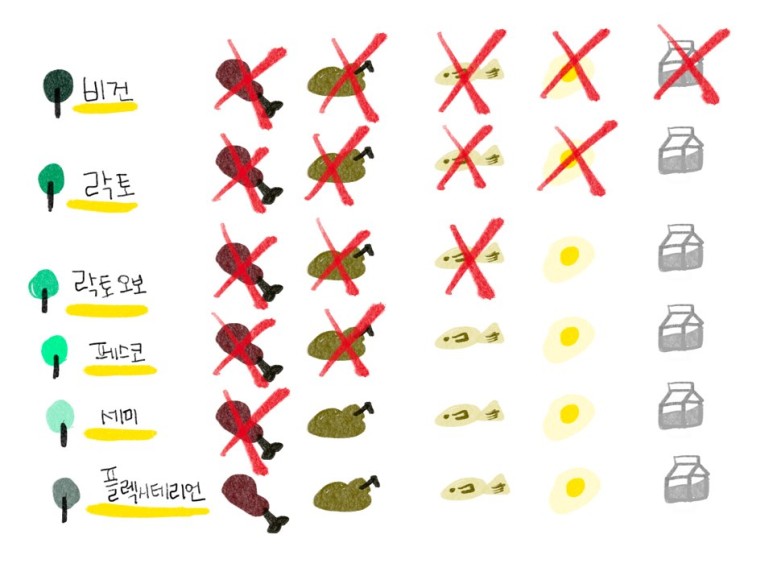 비건
락토
락토오보
페스코
세미
플렉시테리언